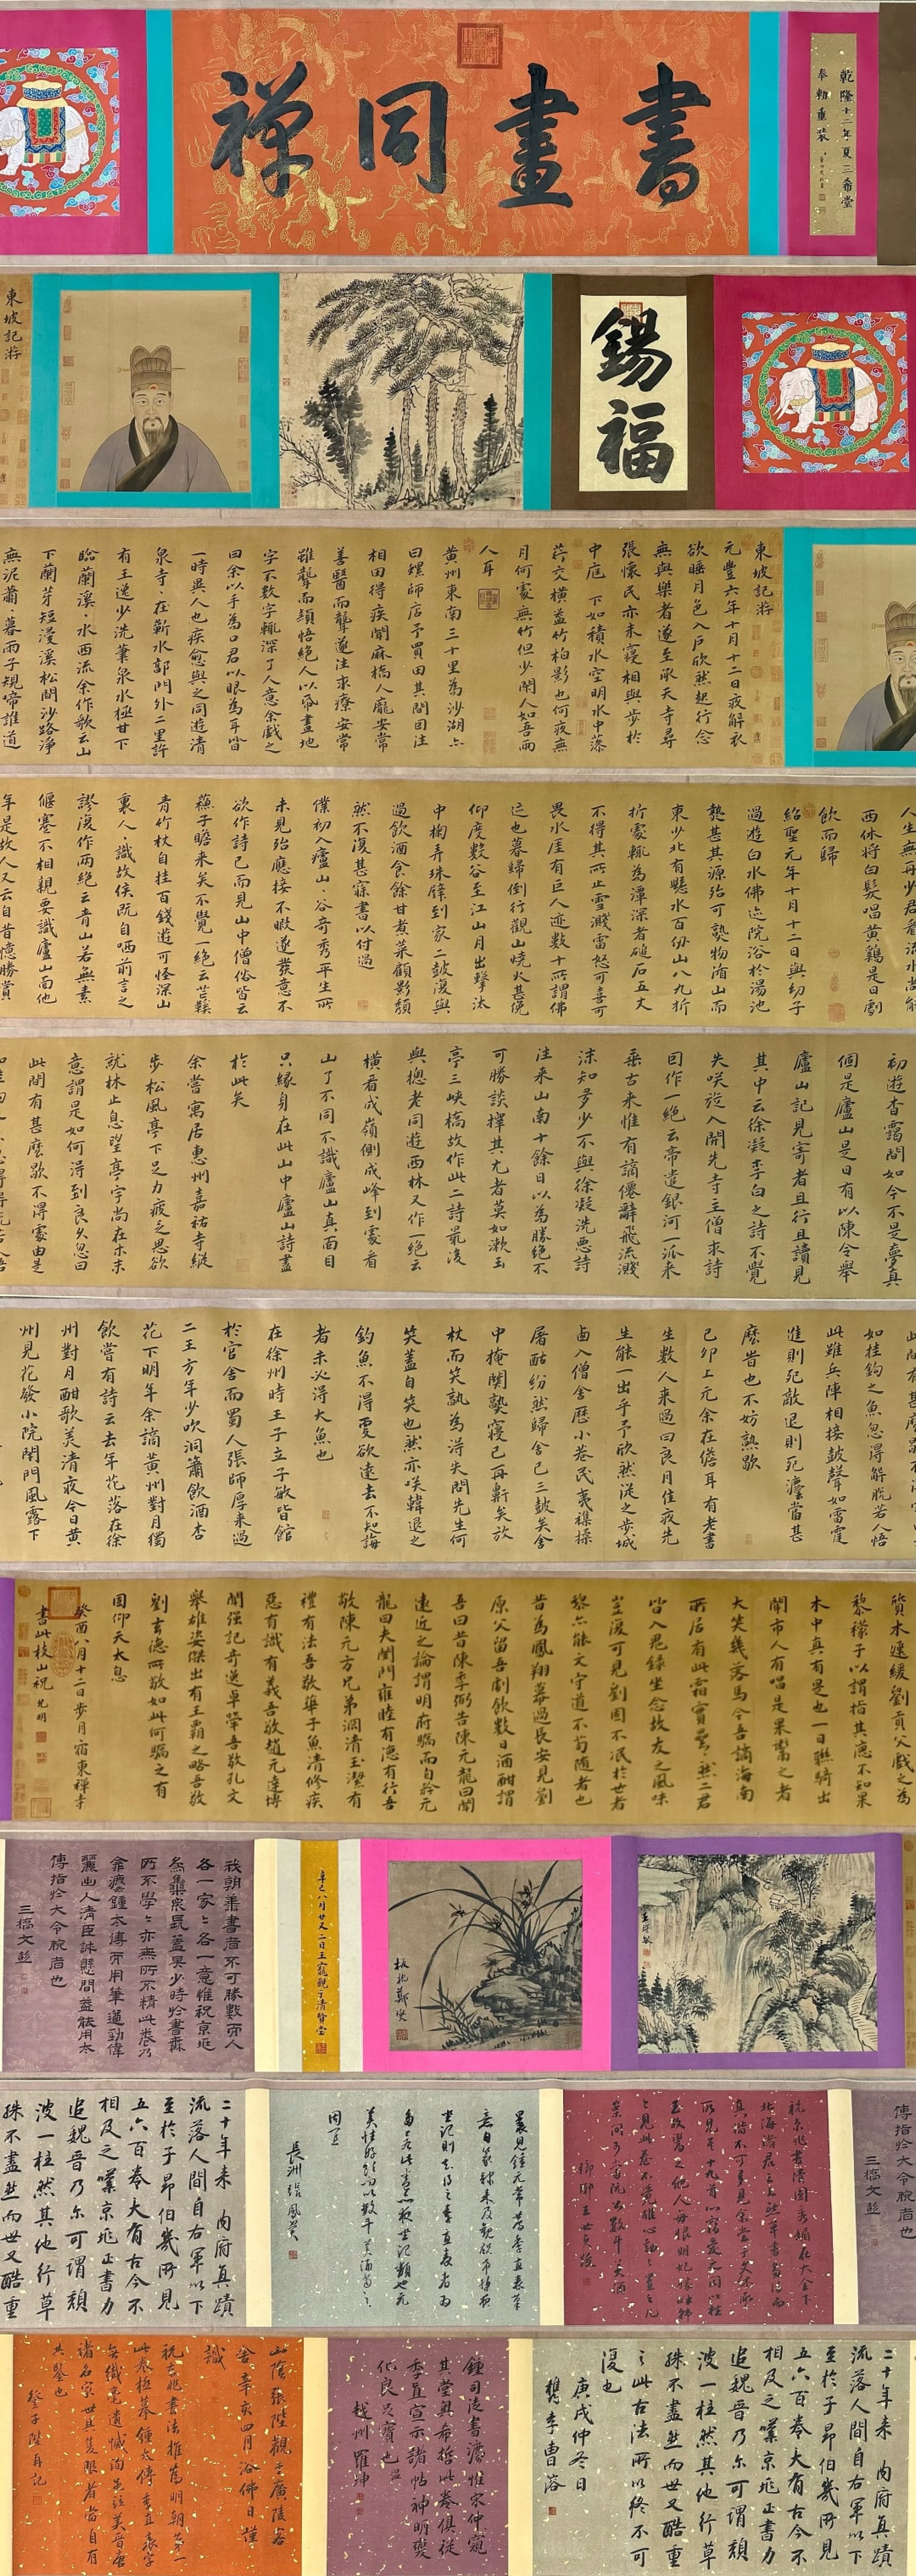 乾隆十二年夏三希堂
奉勅重裝
書畫同禪
錫福
東坡記游
東坡記游
元豐六年十月十二日夜解衣
欲睡月色入戶欣然起行念
無與樂者遂至承天寺尋
張懷民亦未寢相與步於
中庭下如積水空明水中藻
荇交橫蓋竹柏影也何夜無
月何處無竹但少閑人如吾兩
人耳
黃州東南三十里為沙湖亦
曰螺師店予買田其間因往
相田得疾聞麻橋人龐安常
善醫而聾遂往求療安常
雖聾而穎悟絕人以紙畫地
字不數字輒深了人意余戲之
曰余以手為口君以眼為耳皆
一時異人也疾愈與之同遊清
泉寺在蘄水郭門外二里許
有王逸少洗筆泉水極甘下
臨蘭溪水西流余作歌云山
下蘭芽短浸溪松間沙路淨
無泥蕭蕭暮雨子規啼誰道
人生無再少君看流水尚能
西休將白髮唱黃鷄是日劇
飲而歸
紹聖元年十月十二日與幼子
過遊白水佛迹院浴於湯池
熱甚其源殆可熟物循山而
東少北有懸水百仞山八九折
折處輒為潭深者磓石五丈
不得其所止雪濺雷怒可喜可
畏水崖有巨人迹數十所謂佛
迹也暮歸倒行觀山燒火甚俛
仰度數谷至江山月出擊汰
中椈弄珠璧到家二鼓復與
過飲酒食餘甘煮菜顧影頹
然不復甚寐書以付過
僕初入廬山山谷奇秀平生所
未見殆應接不暇遂發意不
欲作詩已而見山中僧俗皆云
蘇子瞻來矣不覺一絕云芒鞵
青竹杖自挂百錢遊可怪深山
裏人人識故侯既自哂前言之
謬復作兩絕云青山若無素
偃蹇不相親要識廬山面他
年是故人又云自昔憶勝賞
初遊杳靄間如今不是夢真
個是廬山是日有以陳令舉
廬山記見寄者且行且讀見
其中云徐凝李白之詩不覺
失咲旋入開先寺主僧求詩
因作一絕云帝遣銀河一派來
垂古來惟有謫僊辭飛流濺
沫知多少不與徐凝洗惡詩
往來山南十餘日以為勝絕不
可勝談擇其尤者莫如漱玉
亭三峽橋故作此二詩最後
與摠老同遊西林又作一絕云
橫看成嶺側成峰到處看
山了不同不識廬山真面目
只緣身在此山中廬山詩盡
於此矣
余嘗寓居惠州嘉祐寺縱
步松風亭下足力疲乏思欲
就林止息望亭宇尚在木末
意謂是如何得到良久忽曰
此間有甚麼歇不得處由是
如挂鉤之魚忽得解脫若人悟
此雖兵陣相接鼓聲如雷霆
進則死敵退則死灋當甚
麼昔也不妨熟歇
己卯上元余在儋耳有老書
生數人來過曰良月佳夜先
生能一出乎予欣然從之步城
西入僧舍歷小巷民夷襍揉
屠酤紛然歸舍已三鼓矣舍
中掩關熟寢已再鼾矣放
杖而笑孰為得失問先生何
笑蓋自笑也然亦咲韓退之
釣魚不得更欲遠去不知誨
者未必得大魚也
在徐州時王子立子敏皆館
於官舍而蜀人張師厚來過
二王方年少吹洞簫飲酒杏
花下明年余謫黃州對月獨
飲嘗有詩云去年花落在徐
州對月酣歌美清夜今日黃
州見花發小院閑門風露下
質木遲緩劉貢父戲之為
黎檬子以謂指其應不知果
木中真有是也一日聯騎出
聞市人有唱是果鬻之者
大笑幾落馬今吾謫海南
所居有此霜實纍纍然二君
皆入鬼錄坐念故友之風味
豈復可見劉固不泯於世者
黎亦能文守道不苟隨者也
昔為鳳翔幕過長安見劉
原父留吾劇飲數日酒酣謂
吾曰昔陳季弼告陳元龍曰聞
遠近之論謂明府驕而自矜元
龍曰夫閨門雍睦有德有行吾
敬陳元方兄弟淵清玉潔有
禮有法吾敬華子魚清修疾
惡有識有義吾敬趙元達博
聞强記奇逸卓犖吾敬孔文
舉雄姿傑出有王霸之略吾敬
劉玄德所敬如此何驕之有
因仰天太息
癸酉八月十二日步月宿東禪寺
書此枝山祝允明
板橋鄭燮
辛巳八月廿又二日王寵觀于清賢堂
我朝善書者不可勝數而人
各一家家各一意惟祝京兆
為集眾長蓋其少時於書
所不學學亦無所不精此卷乃
傅指於大令腕者也
三橋文彭
傅指於大令腕者也
三橋文彭
瑯琊王世貞
長洲張鳳翼
二十年來內府真蹟
流落人間自右軍以下
至於子昂伯幾所見
五六百卷大有古今不
相及之嘆京兆正書力
追魏晉乃尔可謂頹
波一柱然其他行草
殊不盡然而世又酷重
二十年來內府真蹟
流落人間自右軍以下
至於子昂伯幾所見
五六百卷大有古今不
相及之嘆京兆正書力
追魏晉乃尔可謂頹
波一柱然其他行草
殊不盡然而世又酷重
之此古法所以終不可
復也
庚戌仲冬日
檇李曹溶
鍾司徒書灋惟宋仲窺
其堂奧希哲此卷俱從
季直宣示諸帖神明變
化良足寶也
越州羅坤
山陰張陛觀于廣陵客
舍辛亥四月浴佛日謹
識
祝京兆書法推為明朝第一
此卷極摹鍾太傅季直表字
無纖毫遺憾洵足注美晉唐
諸名家世具隻眼者當自有
共鑒也
癸子陛再記